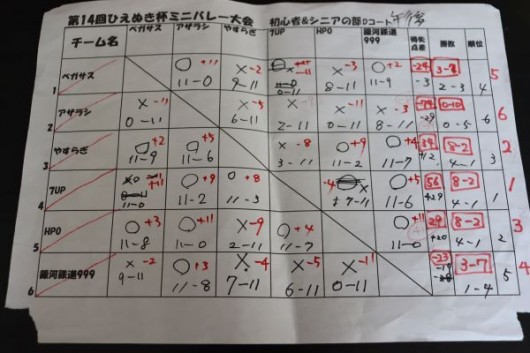 第14回ひえぬき杯ミニバレー大会 初心者&シニアの部Dコート
チーム名 ペガサス アザラシ やすらぎ 7UP HPO 銀河鉄道999 得失点差 勝数 順位
1 ペガサス ○ +11 11-0 × -2 9-11 -11 0-11 × -3 8-11 ○ +2 11-9 -3 3-7 2-3 4 5
2 アザラシ × -11 0-11 × -5 6-11 × 2-11 × -11 0-11 × -3 8-11 -29 0-10 0-5 6 6
3 やすらぎ ○ +2 11-9 ○ +5 11-6 × -8 3-11 ○ +9 11-2 ○ +4 11-7 +12 8-2 4-1 3 2
4 7UP +11 11-0 ○ +9 11-2 ○ +8 11-3 -4 7-11 ○ +5 11-6 56 +29 8-2 4-1 1 1
5 HPO ○ +3 11-8 ○ +11 11-0 × -9 2-11 ○ +4 11-7 ○ +11 11-0 29 +20 8-2 4-1 2 3
6 銀河鉄道999 × -2 9-11 ○ +3 11-8 × -4 7-11 × -5 6-11 × -11 0-11 -23 3-7 1-4 5 4